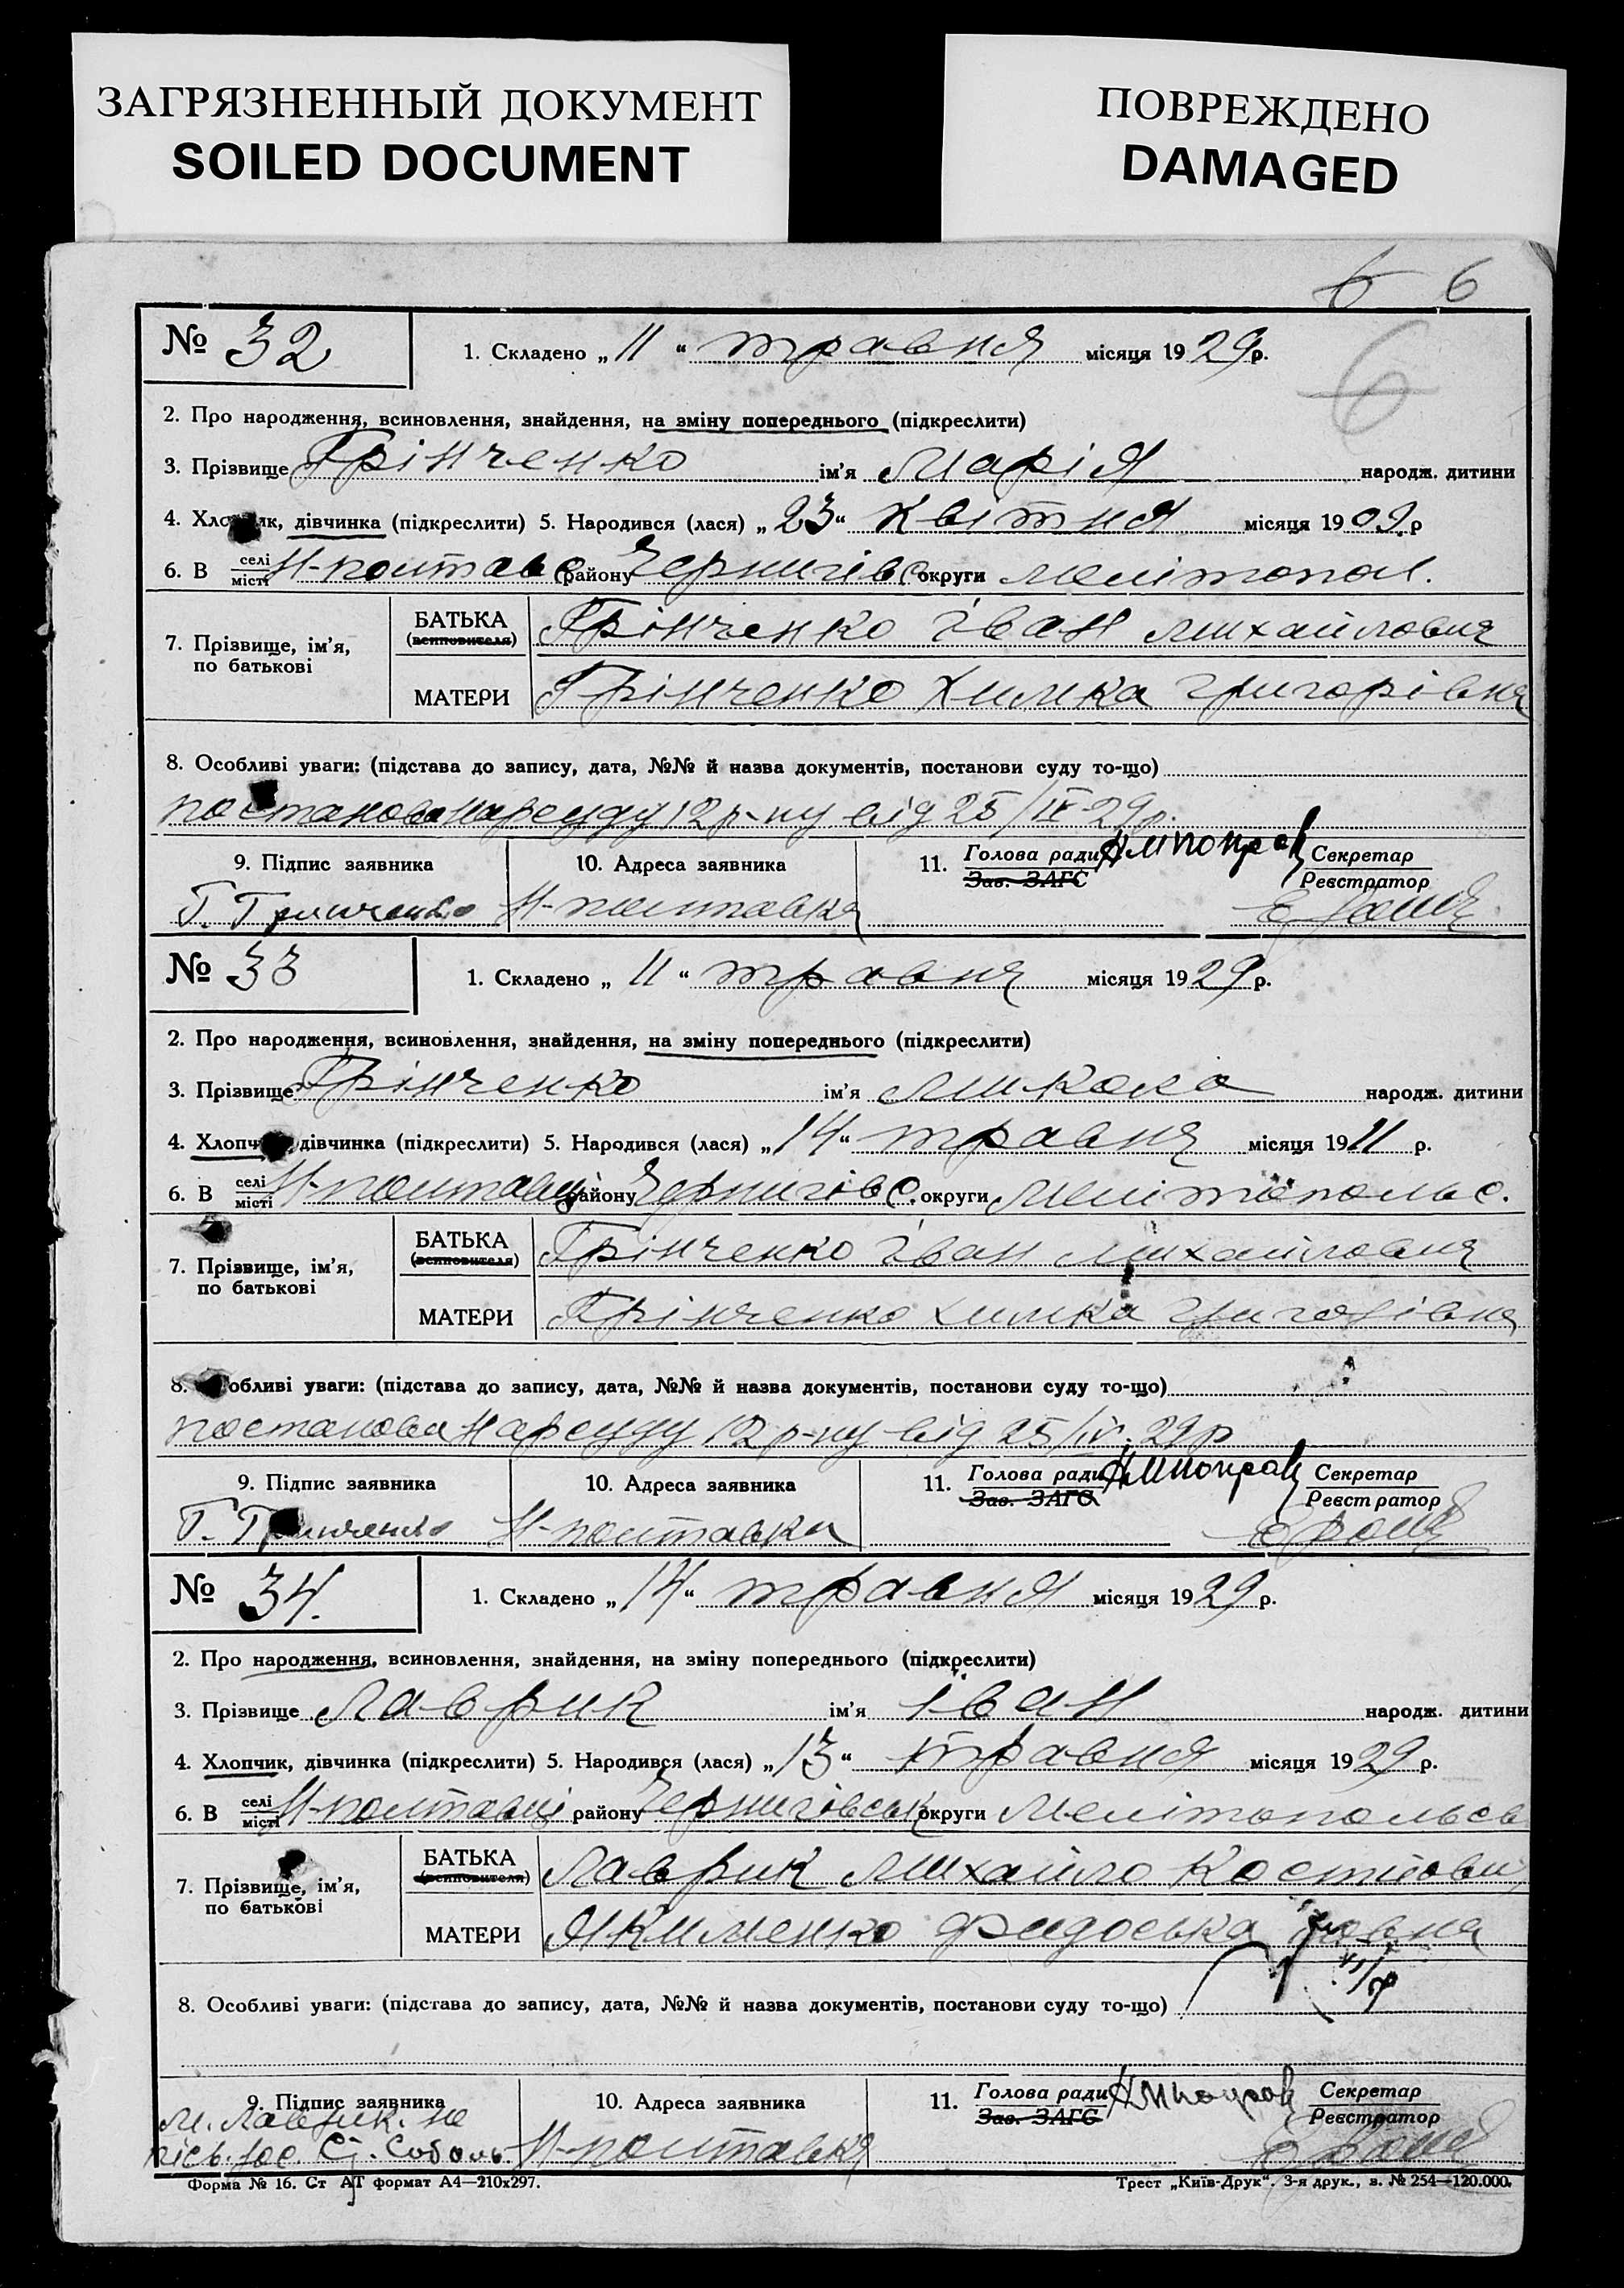 ЗАГРЯЗНЕННЫЙ ДОКУМЕНТ
SOILED DOCUMENT
ПОВРЕЖДЕНО
DAMAGED
6 6
6
№ 32 1. Складено „ 11 “ травня місяця 1929 р.
2. Про народження, всиновлення, знайдення, на зміну попереднього (підкреслити)
3. Прізвище Грінченко ім'я Марія народж. дитини
4. Хлопчик, дівчинка (підкреслити) 5. Народився (лася) „ 23 “ квітня місяця 1909 р
6. В селі місті Н-полтавс району Чернигівс округи Мелітопол.
7. Прізвище, ім'я, по батькові
БАТЬКА (всиновителя) Грінченко Іван Михайлович
МАТЕРИ Грінченко Химка Григорівна
8. Особливі уваги: (підстава до запису, дата, №№ й назва документів, постанови суду то-що)
постанова Нарсуду 12 р-ну від 25/IV 29 р.
9. Підпис заявника 10. Адреса заявника 11. Голова ради Зав. ЗАГС Секретар Реєстратор
Г. Гринченко Н-полтавка
№ 33 1. Складено „ 11 “ травня місяця 1929 р.
2. Про народження, всиновлення, знайдення, на зміну попереднього (підкреслити)
3. Прізвище Грінченко ім'я Микола народж. дитини
4. Хлопчик, дівчинка (підкреслити) 5. Народився (лася) „ 14 “ травня місяця 1911 р.
6. В селі місті Н-полтавці району Чернигівс. округи Мелітопольс.
7. Прізвище, ім'я, по батькові
БАТЬКА (всиновителя) Грінченко Іван Михайлович
МАТЕРИ Грінченко Химка Григорівна
8. Особливі уваги: (підстава до запису, дата, №№ й назва документів, постанови суду то-що)
постанова Нарсуду 12 р-ну від 25/IV. 29 р
9. Підпис заявника 10. Адреса заявника 11. Голова ради Зав. ЗАГС Секретар Реєстратор
Г. Гринченко Н-полтавка
№ 34. 1. Складено „ 14 “ травня місяця 1929 р.
2. Про народження, всиновлення, знайдення, на зміну попереднього (підкреслити)
3. Прізвище Лаврик ім'я Іван народж. дитини
4. Хлопчик, дівчинка (підкреслити) 5. Народився (лася) „ 13 “ травня місяця 1929 р.
6. В селі місті Н-полтавці району Чернигівськ округи Мелітопольсь
7. Прізвище, ім'я, по батькові
БАТЬКА (всиновителя) Лаврик Михайло Костьови
МАТЕРИ Якименко Фидоська
8. Особливі уваги: (підстава до запису, дата, №№ й назва документів, постанови суду то-що)
9. Підпис заявника 10. Адреса заявника 11. Голова ради Зав. ЗАГС Секретар Реєстратор
М. Лаврик. не
Соболь Н-полтавка
Форма № 16. Ст АТ формат А4—210х297. Трест „Київ-Друк“. 3-я друк., з. № 254—120.000.